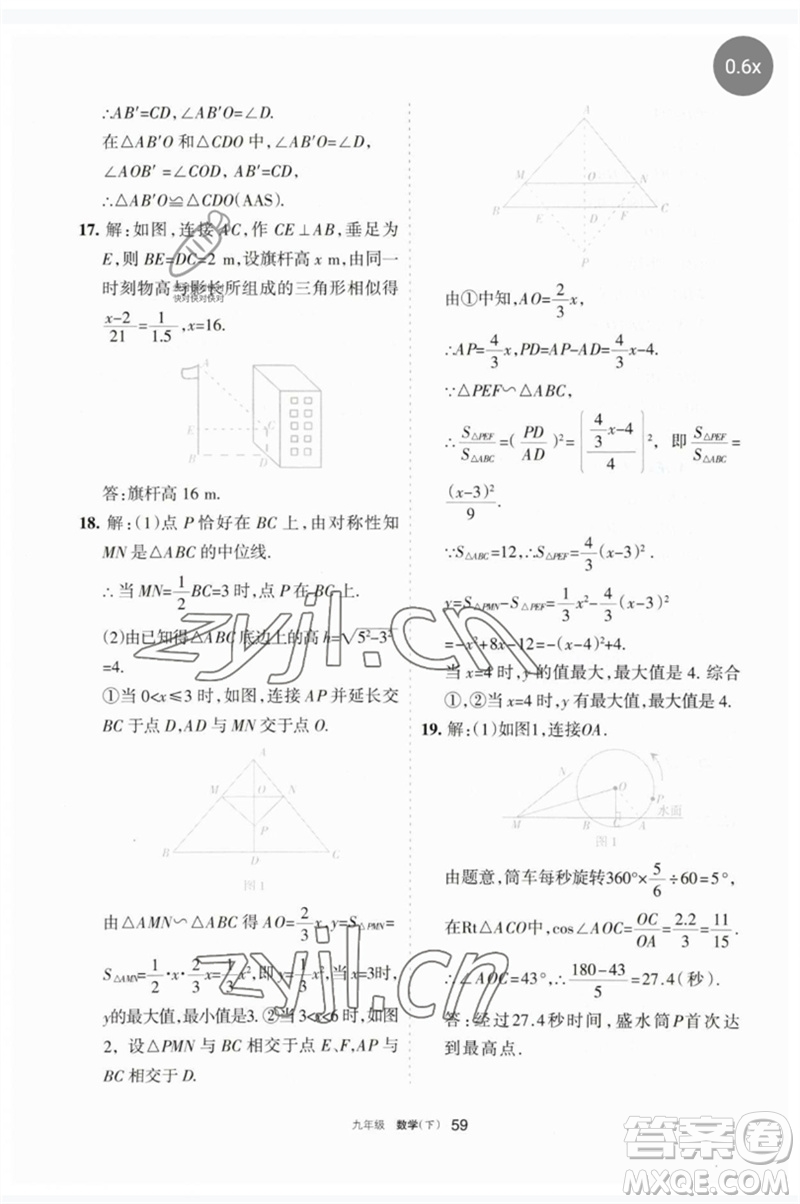 0.6x
∴AB′=CD,∠AB′O=∠D.
在△AB′O 和△CDO 中,∠AB′O=∠D,
∠AOB′ =∠COD, AB′=CD,
∴△AB′O≌△CDO(AAS).
17. 解:如图,连接 AC,作 CE⊥AB,垂足为
E,则 BE=DC=2 m,设旗杆高 x m,由同一
时刻物高与影长所组成的三角形相似得
快对快对快对
(x-2)/21=1/1.5,x=16.
A
E
C
B
D
答:旗杆高 16 m.
18. 解:(1)点 P 恰好在 BC 上,由对称性知
MN 是△ABC 的中位线.
∴当 MN=1/2BC=3 时,点 P 在 BC 上.
(2)由已知得△ABC 底边上的高 h=√(5²-3²)
=4.
①当 0<x≤3 时,如图,连接 AP 并延长交
BC 于点 D,AD 与 MN 交于点 O.
A
M O N
P
B D C
图 1
由△AMN∽△ABC 得 AO=2/3x,y=S△PMN=
S△AMN=1/2·x·2/3x=1/3x²,即y=1/3x²,当 x=3时,
y的最大值,最小值是3. ②当 3<x<6 时,如图
2, 设△PMN 与 BC 相交于点 E、F,AP 与
BC 相交于 D.
A
M O N
B E D F C
P
由①中知, AO=2/3x,
∴AP=4/3x,PD=AP-AD=4/3x-4.
∵△PEF∽△ABC,
∴S△PEF/S△ABC=(PD/AD)²=((4/3x-4)/4)², 即 S△PEF/S△ABC=
(x-3)²/9.
∵S△ABC=12,∴S△PEF=4/3(x-3)².
y=S△PMN-S△PEF=1/3x²-4/3(x-3)²
=-x²+8x-12=-(x-4)²+4.
当 x=4 时,y 的值最大,最大值是 4. 综合
①,②当 x=4 时,y 有最大值,最大值是 4.
19. 解:(1)如图1,连接OA.
N
O
P
水面
M B C A
图 1
由题意,筒车每秒旋转360°×5/6÷60=5°,
在Rt△ACO中,cos∠AOC=OC/OA=2.2/3=11/15
∴∠AOC=43°,∴(180-43)/5=27.4(秒).
答:经过27.4秒时间,盛水筒P首次达
到最高点.
zyjl.cn
zyjl.cn
九年级 数学(下) 59
答案圈
MXQE.COM